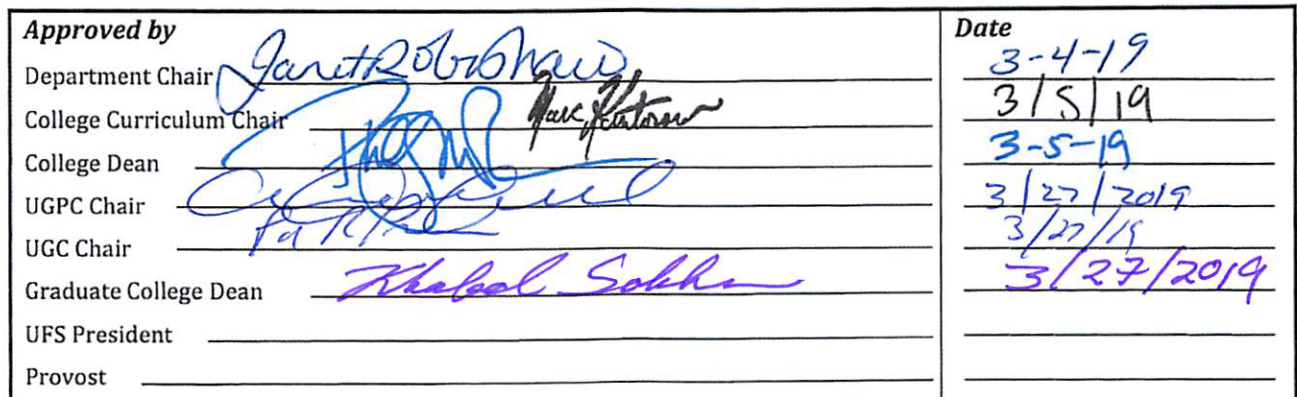 Approved by Date
Department Chair Janet Robishaw 3-4-19
College Curriculum Chair Marc Kantorow 3/5/19
College Dean 3-5-19
UGPC Chair 3/27/2019
UGC Chair 3/27/19
Graduate College Dean Khaled Sobhan 3/27/2019
UFS President
Provost